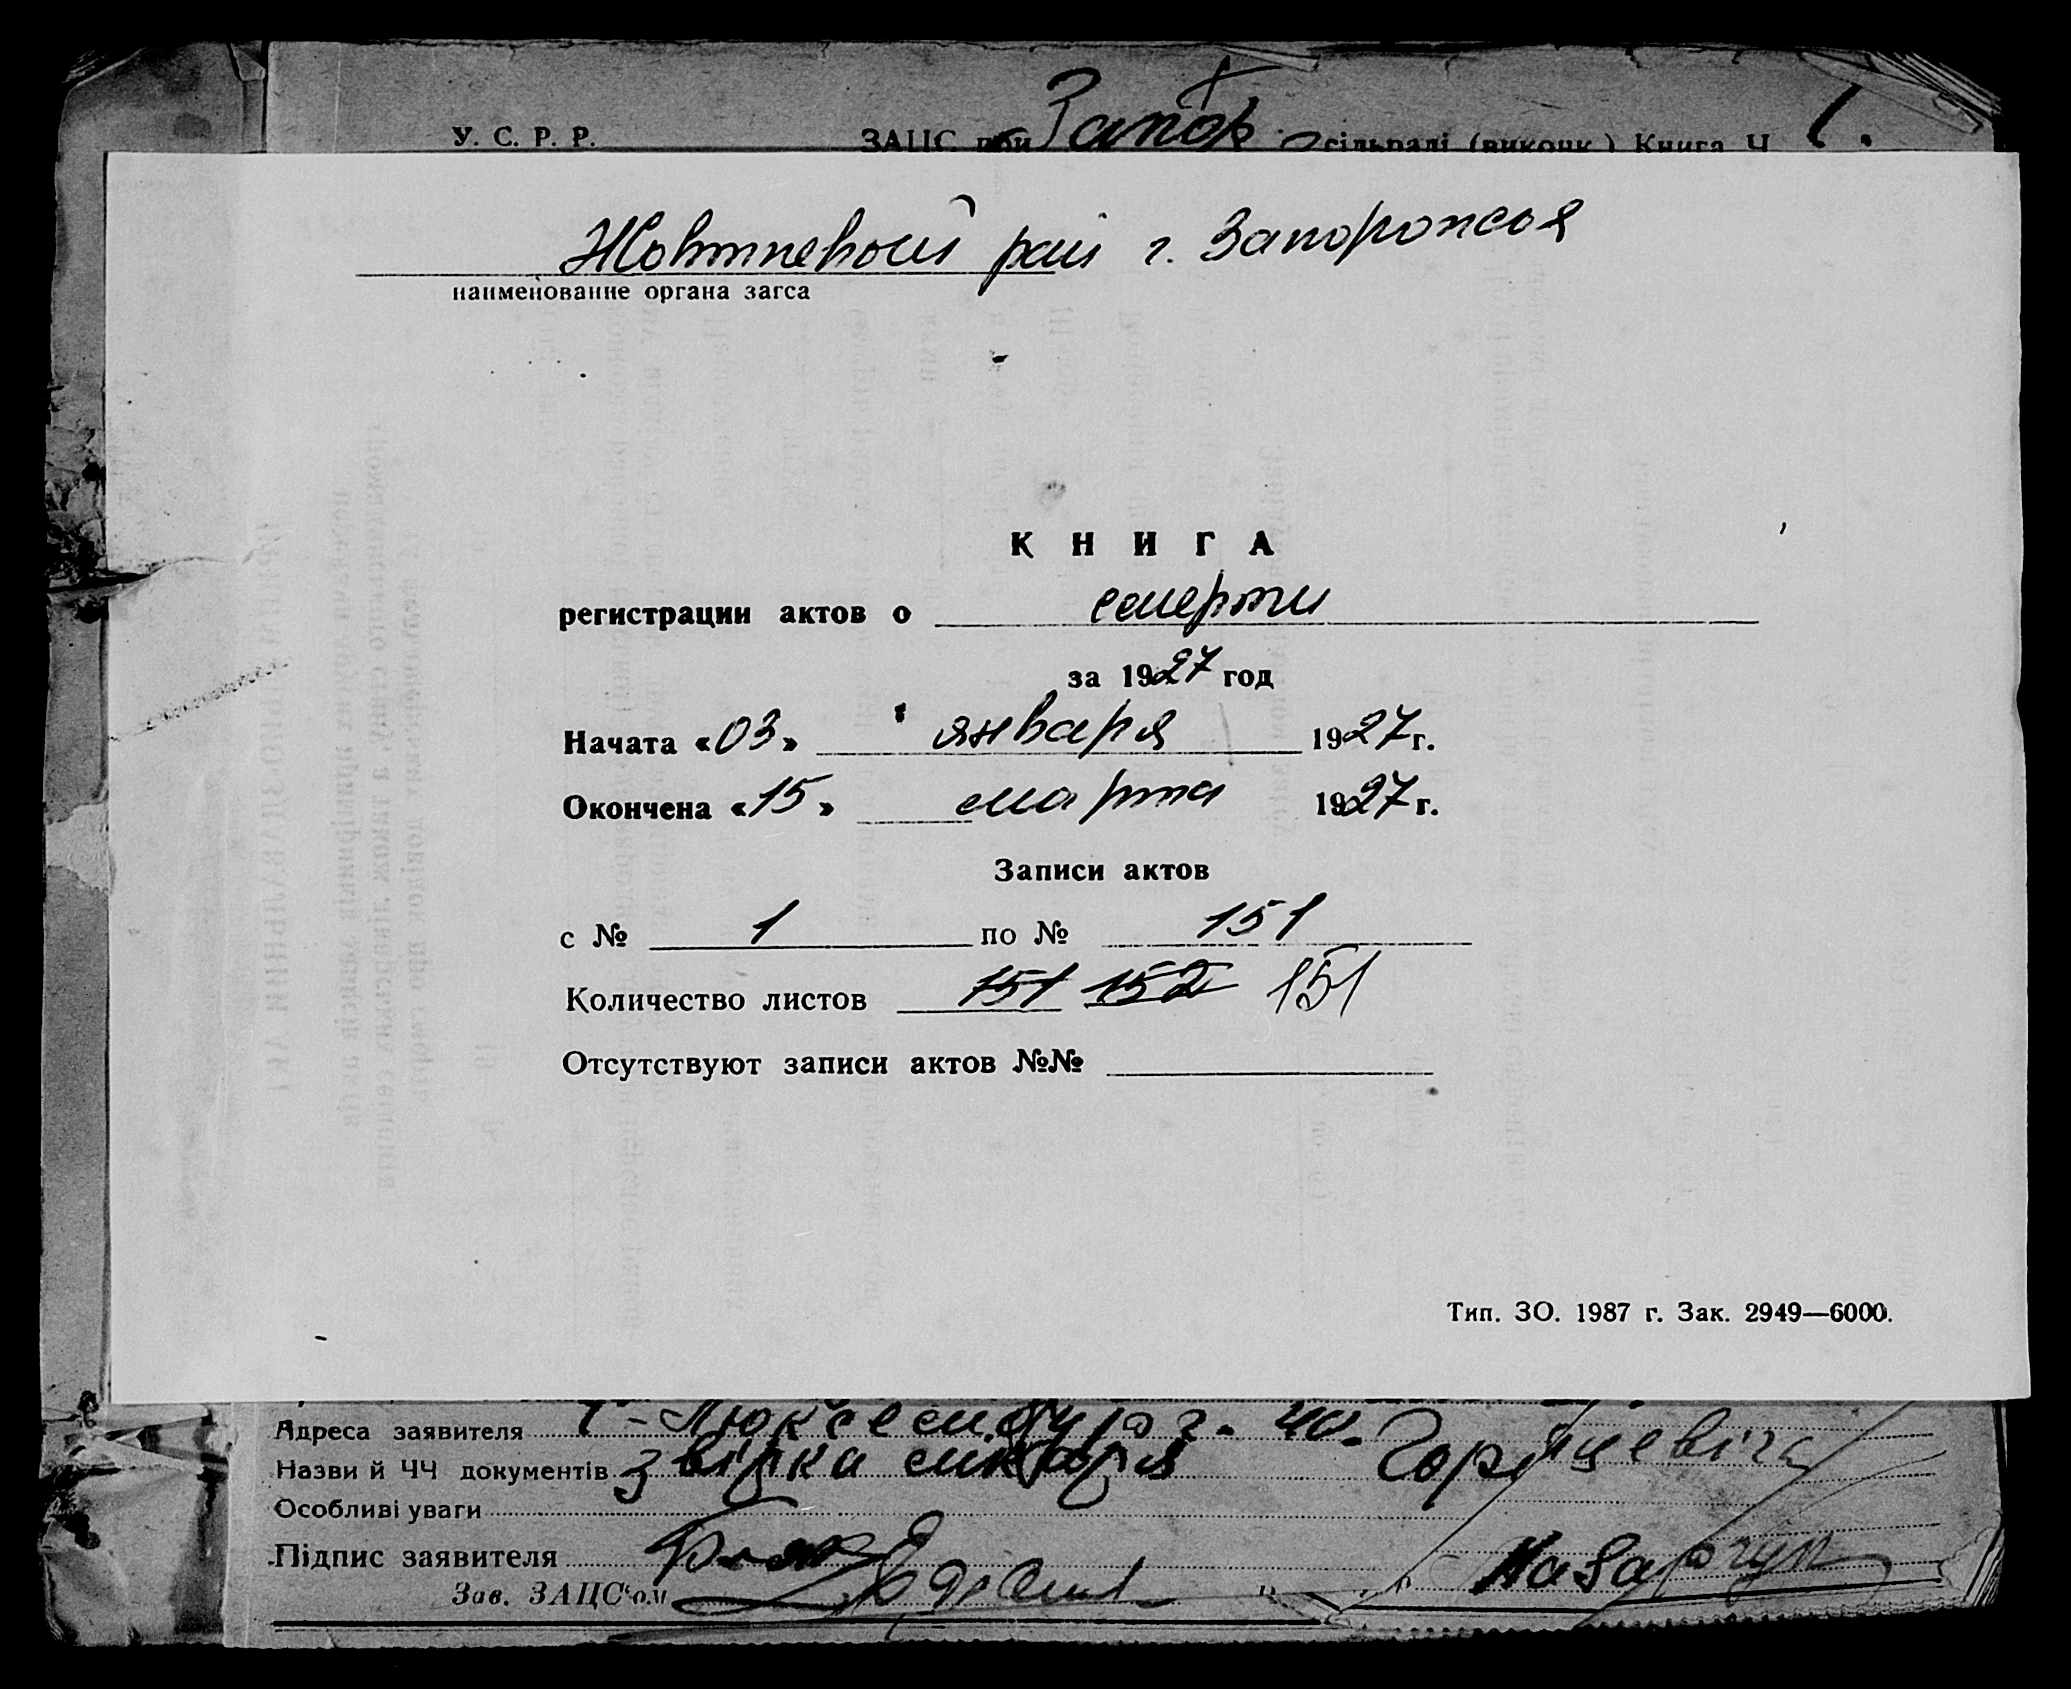 У. С. Р. Р. ЗАЦС при Запор. сільраді (виконк.) Книга Ч 1.
Жовтневый рай г. Запорожья
наименование органа загса
КНИГА
регистрации актов о смерти
за 1927 год
Начата «03» января 1927 г.
Окончена «15» марта 1927 г.
Записи актов
с № 1 по № 151
Количество листов 151 152 151
Отсутствуют записи актов №№
Тип. ЗО. 1987 г. Зак. 2949—6000.
Адреса заявителя Люксембург 40.
Назви й ЧЧ документів лікаря
Особливі уваги
Підпис заявителя
Зав. ЗАЦС'ом Назарчук